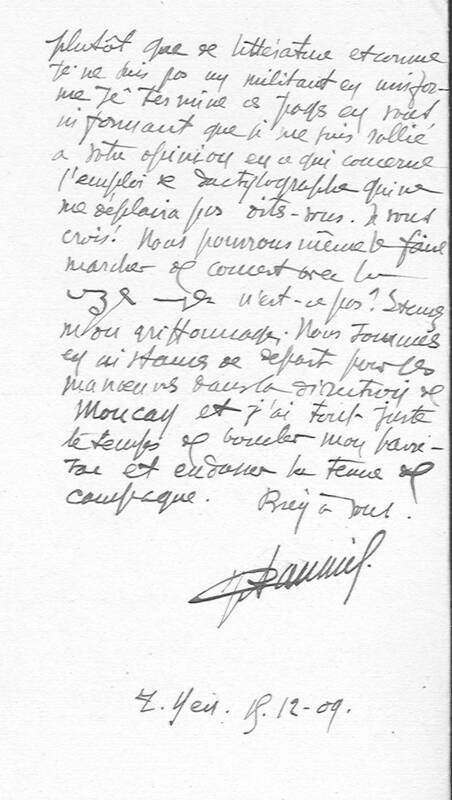 plutôt que de littérature et comme
je ne suis pas un militant en unifor-
me je termine ce pays en vous
informant que je me suis rallié
a votre opinion en ce qui concerne
l'emploi de dactylographe qui ne
me déplaira pas dites-vous. Je vous
crois! Nous pourrons même le faire
marcher de concert avec la
n'est-ce pas?
mon griffonnage. Nous sommes
en instance de départ pour les
manœuvres dans la direction de
Moncay et j'ai tout juste
le temps de boucler mon havre-
sac et endosser la tenue de
campagne. Bien à vous.
T. Yen. 15.12-09.